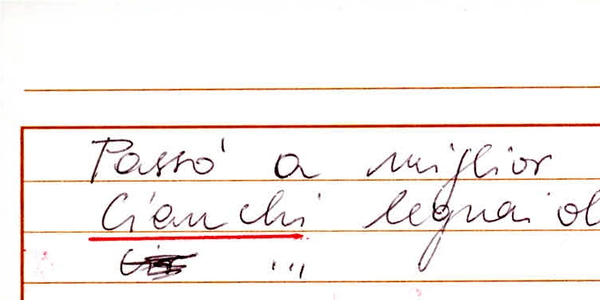 Passò a miglior
Cianchi legnaiol
...